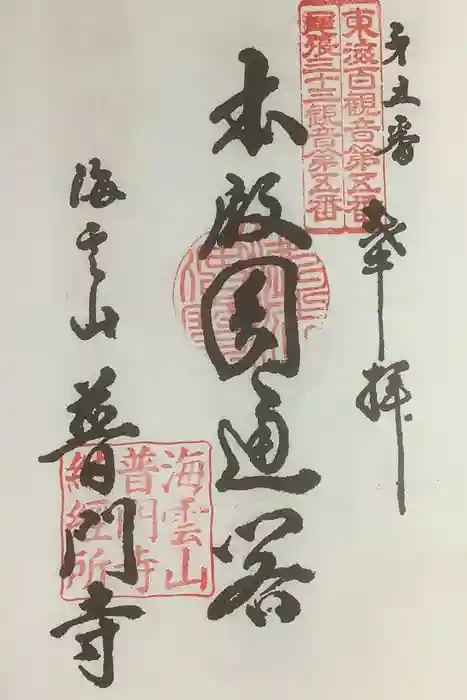 東海百観音第五番
尾張三十三観音第五番
第五番 奉拝
本殿圓通閣
海雲山
普門寺
海雲山
普門寺
納経所